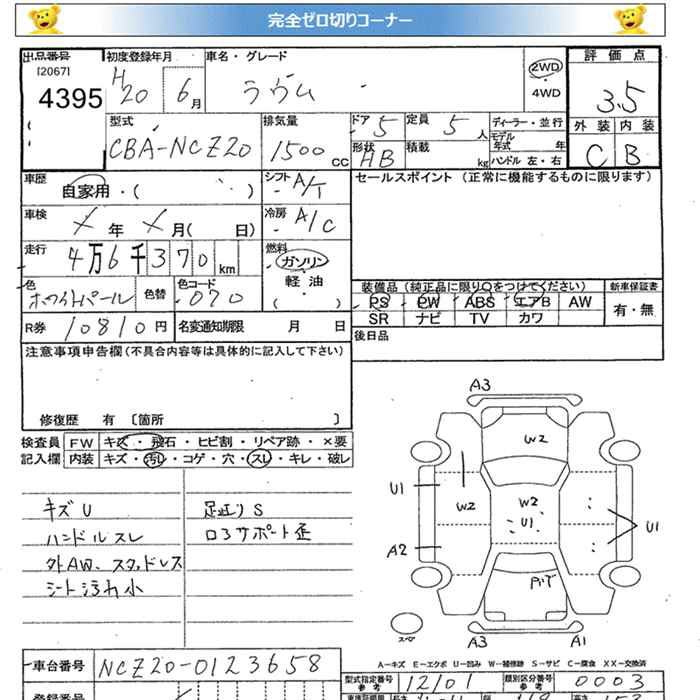 完全ゼロ切りコーナー
出品番号
[2067]
4395
初度登録年月
H20 6月
車名・グレード
ラウム
2WD
4WD
評価点
3.5
外装 内装
C B
型式
CBA-NCZ20
排気量
1500 cc
ドア 5
定員 5 人
形状 HB
積載 kg
ディーラー・並行
モデル年式 年
ハンドル 左・右
車歴
自家用・( )
シフト A/T
セールスポイント (正常に機能するものに限ります)
車検
× 年 × 月( 日)
冷房 A/C
走行
4万6千370km
燃料
ガソリン
軽油
( )
色
ホワイトパール
色替
色コード
070
装備品 (純正品に限り○をつけてください)
新車保証書
PS PW ABS エアB AW
SR ナビ TV カワ
有・無
R券 10810円
名変通知期限 月 日
後日品
注意事項申告欄(不具合内容等は具体的に記入して下さい)
修復歴 有 〔箇所 〕
検査員記入欄
FW キズ・飛石・ヒビ割・リペア跡・×要
内装 キズ・汚レ・コゲ・穴・スレ・キレ・破レ
キズU
ハンドルスレ
外AW、スタッドレス
シート汚れ小
足廻りS
ロアサポート歪
A3
W2
U1
W2
W2
U1
U1
A2
スペア
A3
A1
A-キズ E-エクボ U-凹み W-補修跡 S-サビ C-腐食 XX-交換済
車台番号
NCZ20-0123658
型式指定番号
参考
12101
類別区分番号
参考
0003
登録番号